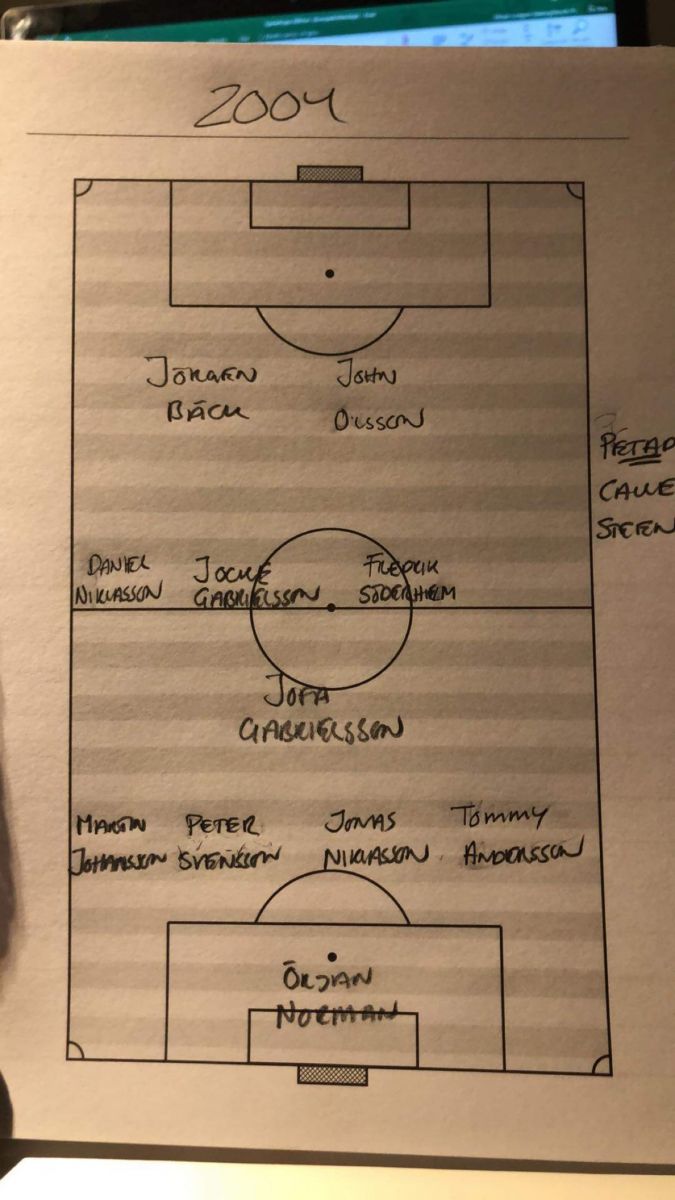 2004
JÖRGEN
BÄCK
JOHN
OLSSON
PETAD
CALLE
STEFEN
DANIEL
NIKLASSON
JOCKE
GABRIELSSON
FREDRIK
SÖDERHIELM
JOFA
GABRIELSSON
MARTIN
JOHANSSON
PETER
SVENSSON
JONAS
NIKLASSON
TOMMY
ANDERSSON
ÖRJAN
NORMAN